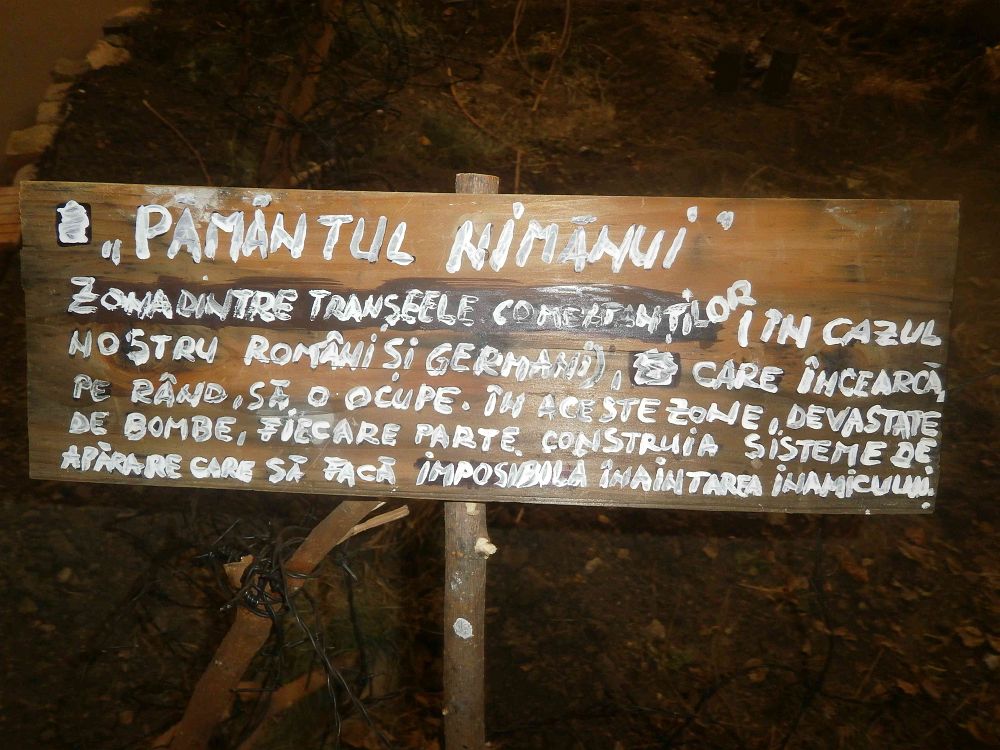 „PĂMÂNTUL NIMĂNUI"
ZONA DINTRE TRANȘEELE COMBATANȚILOR (ÎN CAZUL
NOSTRU ROMÂNI ȘI GERMANI), CARE ÎNCEARCĂ,
PE RÂND, SĂ O OCUPE. ÎN ACESTE ZONE, DEVASTATE
DE BOMBE, FIECARE PARTE CONSTRUIA SISTEME DE
APĂRARE CARE SĂ FACĂ IMPOSIBILĂ ÎNAINTAREA INAMICULUI.